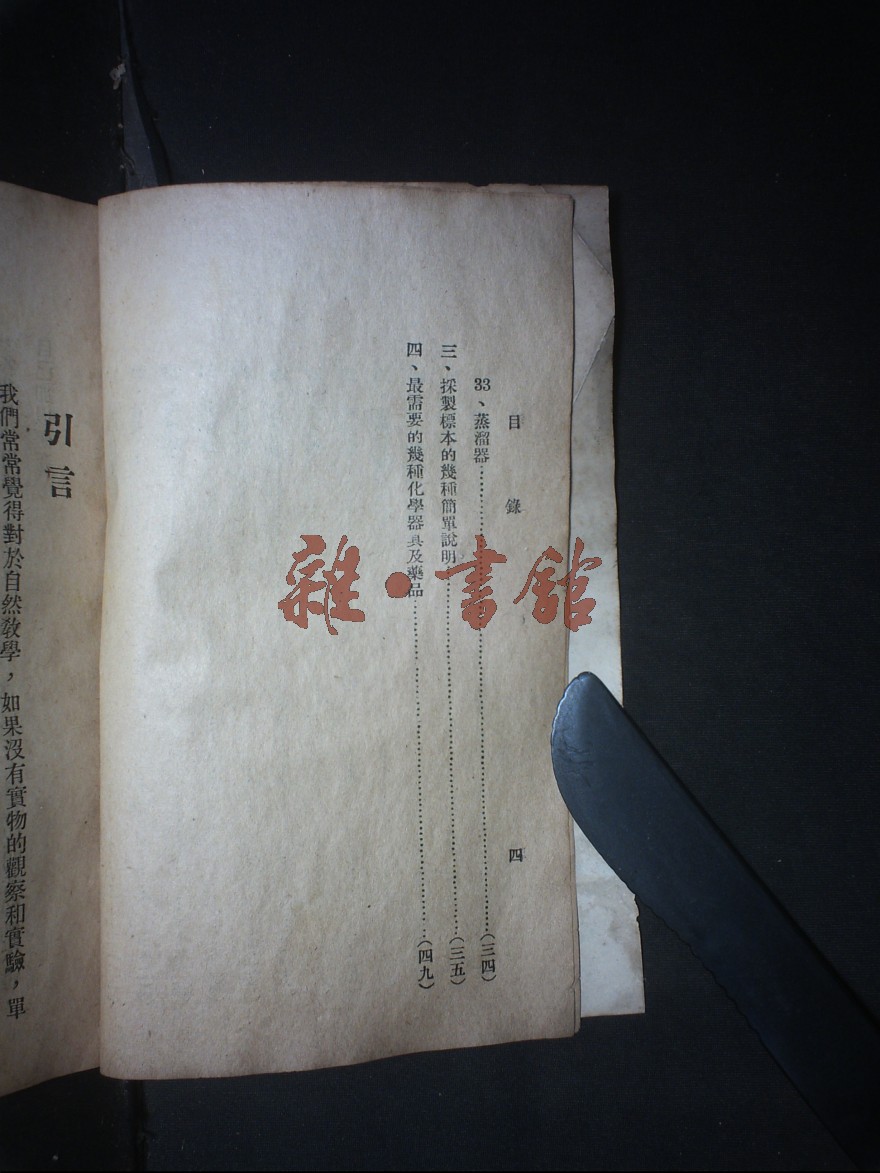 目錄
四
33、蒸溜器……(三四)
三、採製標本的幾種簡單說明……(三五)
四、最需要的幾種化學器具及藥品……(四九)
引言
我們常常覺得對於自然教學，如果沒有實物的觀察和實驗，單
雜·書館